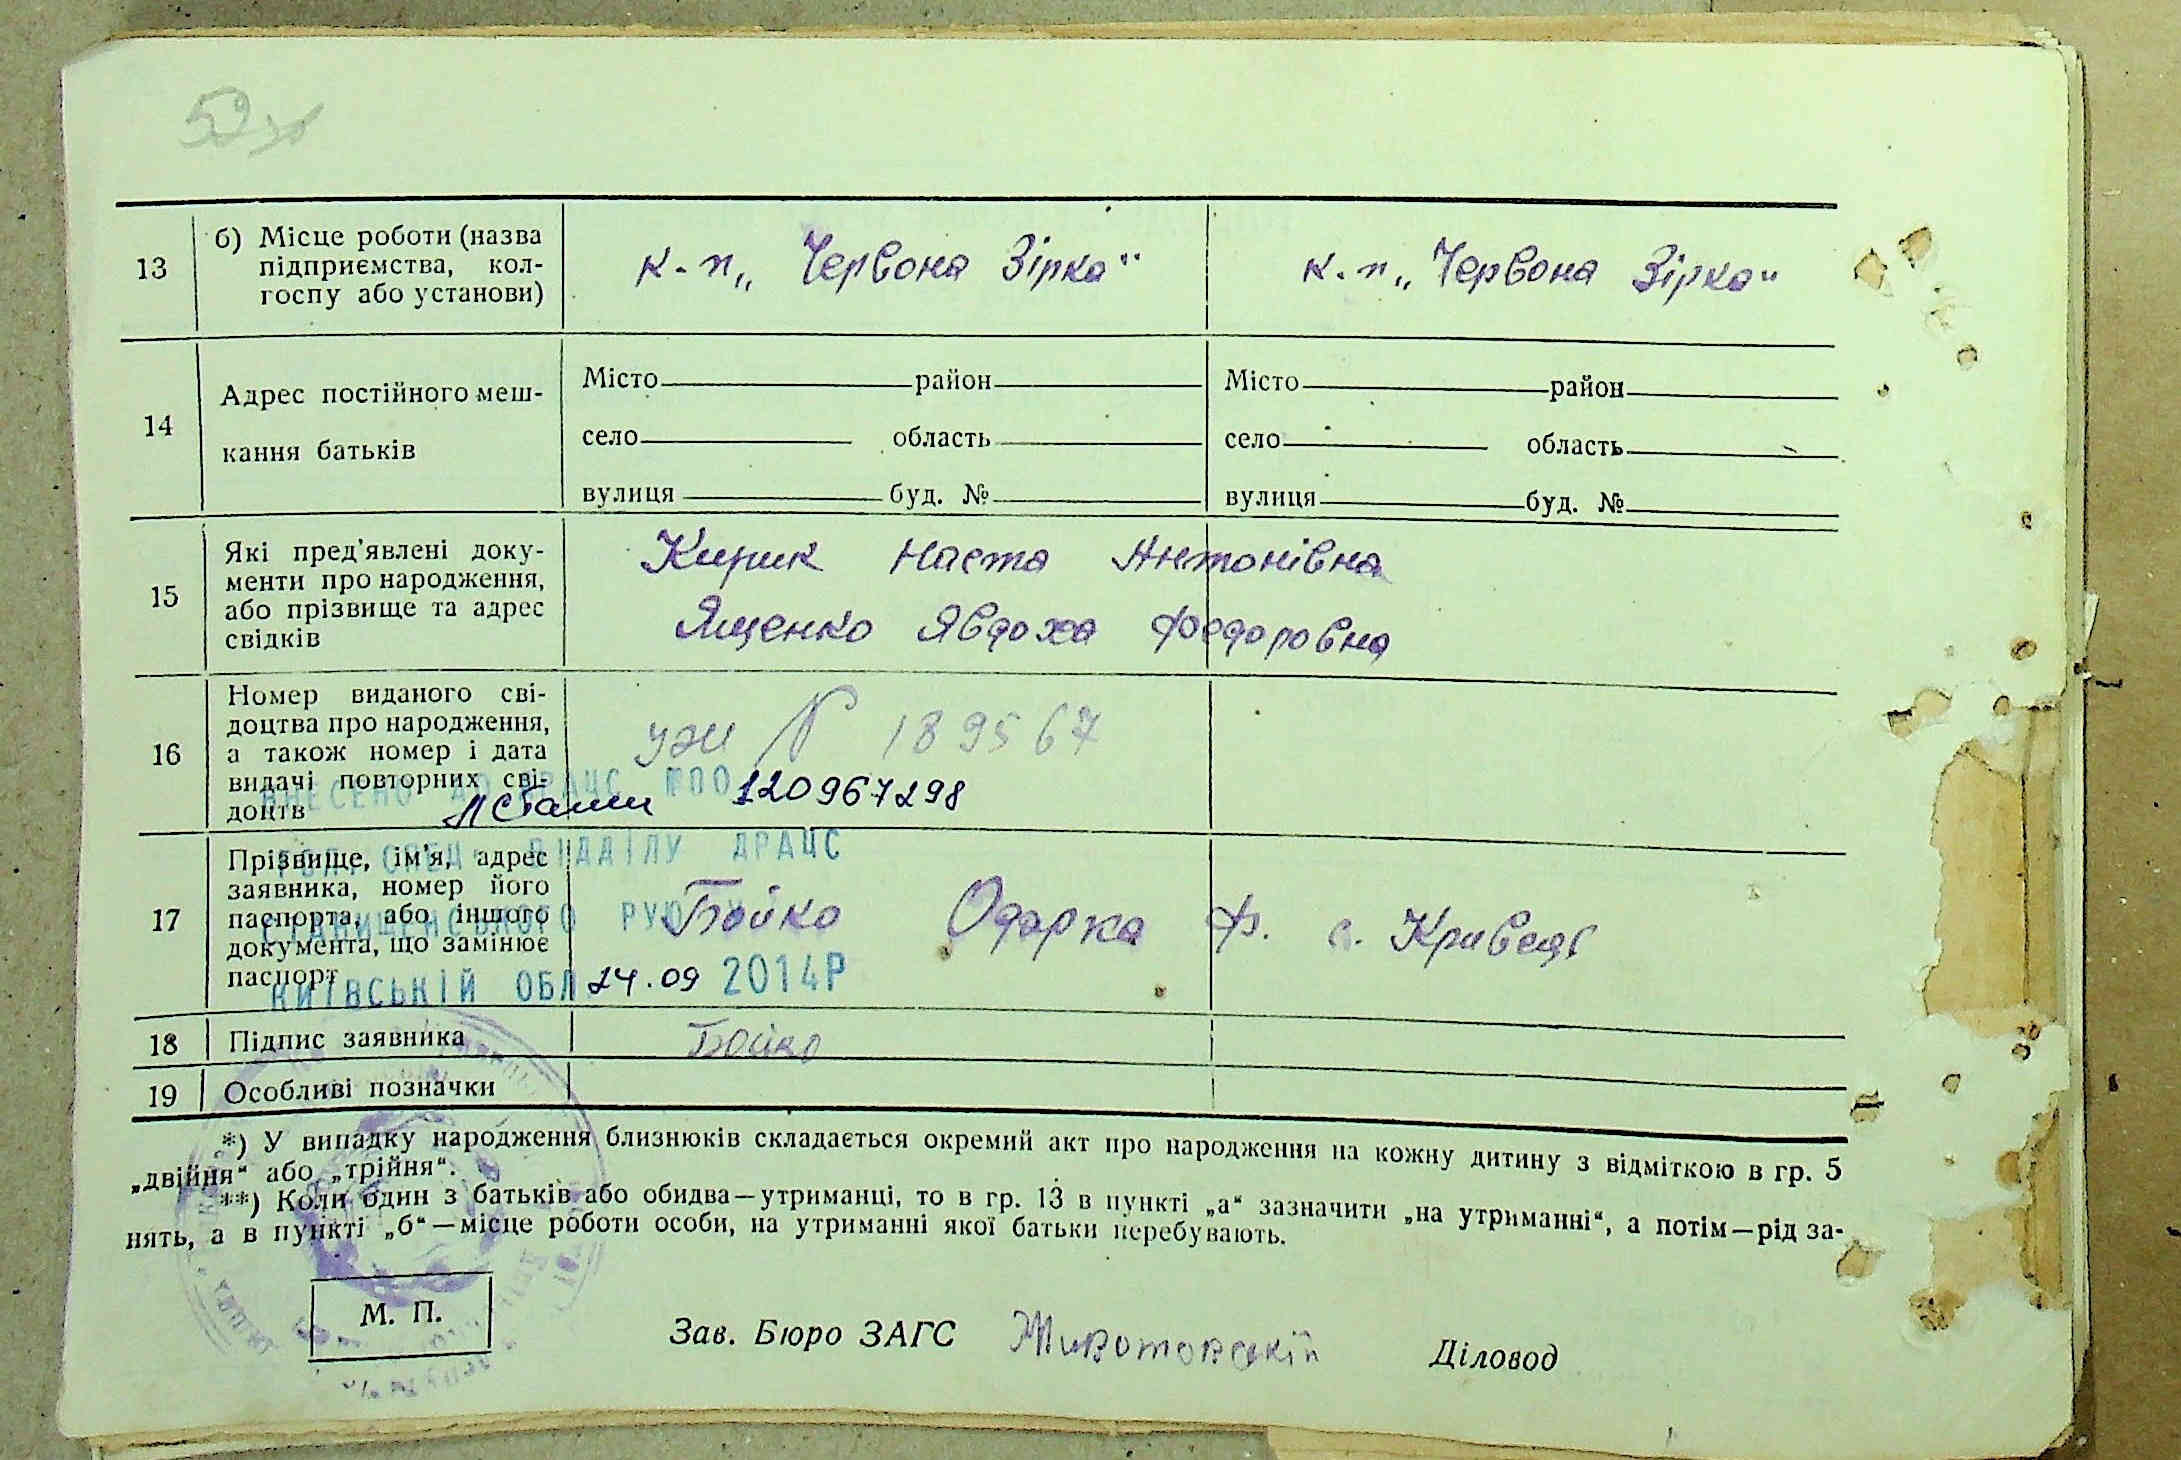 59
13 б) Місце роботи (назва підприємства, колгоспу або установи)
к-п „Червона Зірка“
к.п „Червона Зірка“
14 Адрес постійного меш-
кання батьків
Місто район
село область
вулиця буд. №
Місто район
село область
вулиця буд. №
15 Які пред'явлені доку-
менти про народження,
або прізвище та адрес
свідків
Кирик Наста Антонівна
Ященко Явдоха Федоровна
16 Номер виданого сві-
доцтва про народження,
а також номер і дата
видачі повторних сві-
доцтв
№ 189567
ВНЕСЕНО ДО ДРАЦС
120967298
ГОЛ. СПЕЦ. ВІДДІЛУ ДРАЦС
17 Прізвище, ім'я, адрес
заявника, номер його
паспорта, або іншого
документа, що замінює
паспорт
Бойко Одарка Ф. с. Кривець
СТАВИЩЕНСЬКОГО РУЮ
КИЇВСЬКІЙ ОБЛ 24.09 2014Р
18 Підпис заявника
Бойко
19 Особливі позначки
*) У випадку народження близнюків складається окремий акт про народження на кожну дитину з відміткою в гр. 5
„двійня“ або „трійня“.
**) Коли один з батьків або обидва—утриманці, то в гр. 13 в пункті „а“ зазначити „на утриманні“, а потім—рід за-
нять, а в пункті „б“—місце роботи особи, на утриманні якої батьки перебувають.
М. П.
Зав. Бюро ЗАГС Животовскій Діловод